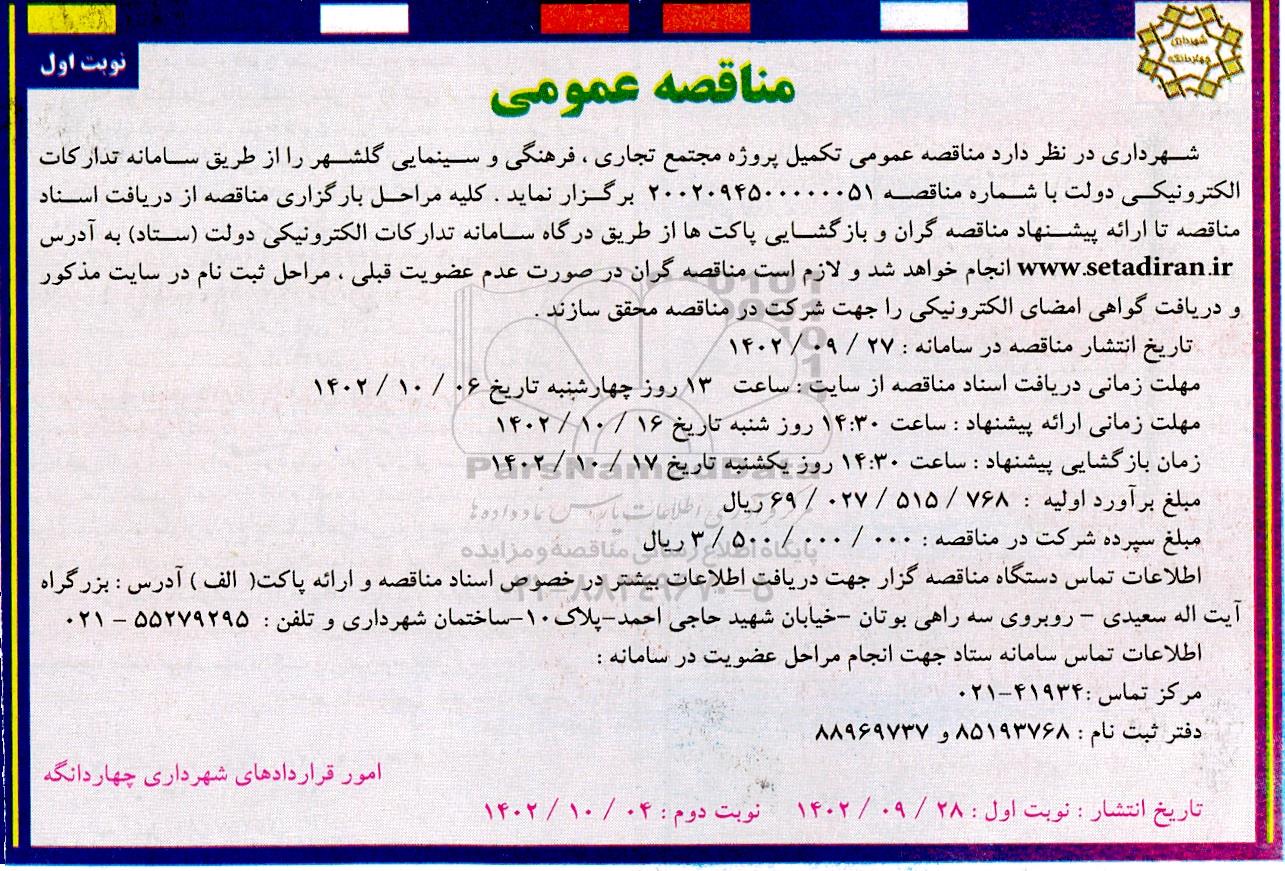 شهرداری چهاردانگه
نوبت اول
مناقصه عمومی
شهرداری در نظر دارد مناقصه عمومی تکمیل پروژه مجتمع تجاری ، فرهنگی و سینمایی گلشهر را از طریق سامانه تدارکات
الکترونیکی دولت با شماره مناقصه ۲۰۰۲۰۹۴۵۰۰۰۰۰۰۵۱ برگزار نماید . کلیه مراحل بارگزاری مناقصه از دریافت اسناد
مناقصه تا ارائه پیشنهاد مناقصه گران و بازگشایی پاکت ها از طریق درگاه سامانه تدارکات الکترونیکی دولت (ستاد) به آدرس
www.setadiran.ir انجام خواهد شد و لازم است مناقصه گران در صورت عدم عضویت قبلی ، مراحل ثبت نام در سایت مذکور
و دریافت گواهی امضای الکترونیکی را جهت شرکت در مناقصه محقق سازند .
تاریخ انتشار مناقصه در سامانه : ۲۷ / ۰۹ / ۱۴۰۲
مهلت زمانی دریافت اسناد مناقصه از سایت : ساعت ۱۳ روز چهارشنبه تاریخ ۰۶ / ۱۰ / ۱۴۰۲
مهلت زمانی ارائه پیشنهاد : ساعت ۱۴:۳۰ روز شنبه تاریخ ۱۶ / ۱۰ / ۱۴۰۲
زمان بازگشایی پیشنهاد : ساعت ۱۴:۳۰ روز یکشنبه تاریخ ۱۷ / ۱۰ / ۱۴۰۲
ParsNamadData
مبلغ برآورد اولیه : ۷۶۸ / ۵۱۵ / ۰۲۷ / ۶۹ ریال
مبلغ سپرده شرکت در مناقصه : ۰۰۰ / ۰۰۰ / ۵۰۰ / ۳ ریال
پایگاه اطلاع رسانی مناقصه و مزایده
اطلاعات تماس دستگاه مناقصه گزار جهت دریافت اطلاعات بیشتر در خصوص اسناد مناقصه و ارائه پاکت( الف ) آدرس : بزرگراه
۰۲۱-۸۸۳۴۹۶۷۰-۵
آیت اله سعیدی – روبروی سه راهی بوتان –خیابان شهید حاجی احمد–پلاک۱۰–ساختمان شهرداری و تلفن : ۵۵۲۷۹۲۹۵ – ۰۲۱
اطلاعات تماس سامانه ستاد جهت انجام مراحل عضویت در سامانه :
مرکز تماس :۴۱۹۳۴–۰۲۱
دفتر ثبت نام : ۸۵۱۹۳۷۶۸ و ۸۸۹۶۹۷۳۷
امور قراردادهای شهرداری چهاردانگه
تاریخ انتشار : نوبت اول : ۲۸ / ۰۹ / ۱۴۰۲ نوبت دوم : ۰۴ / ۱۰ / ۱۴۰۲